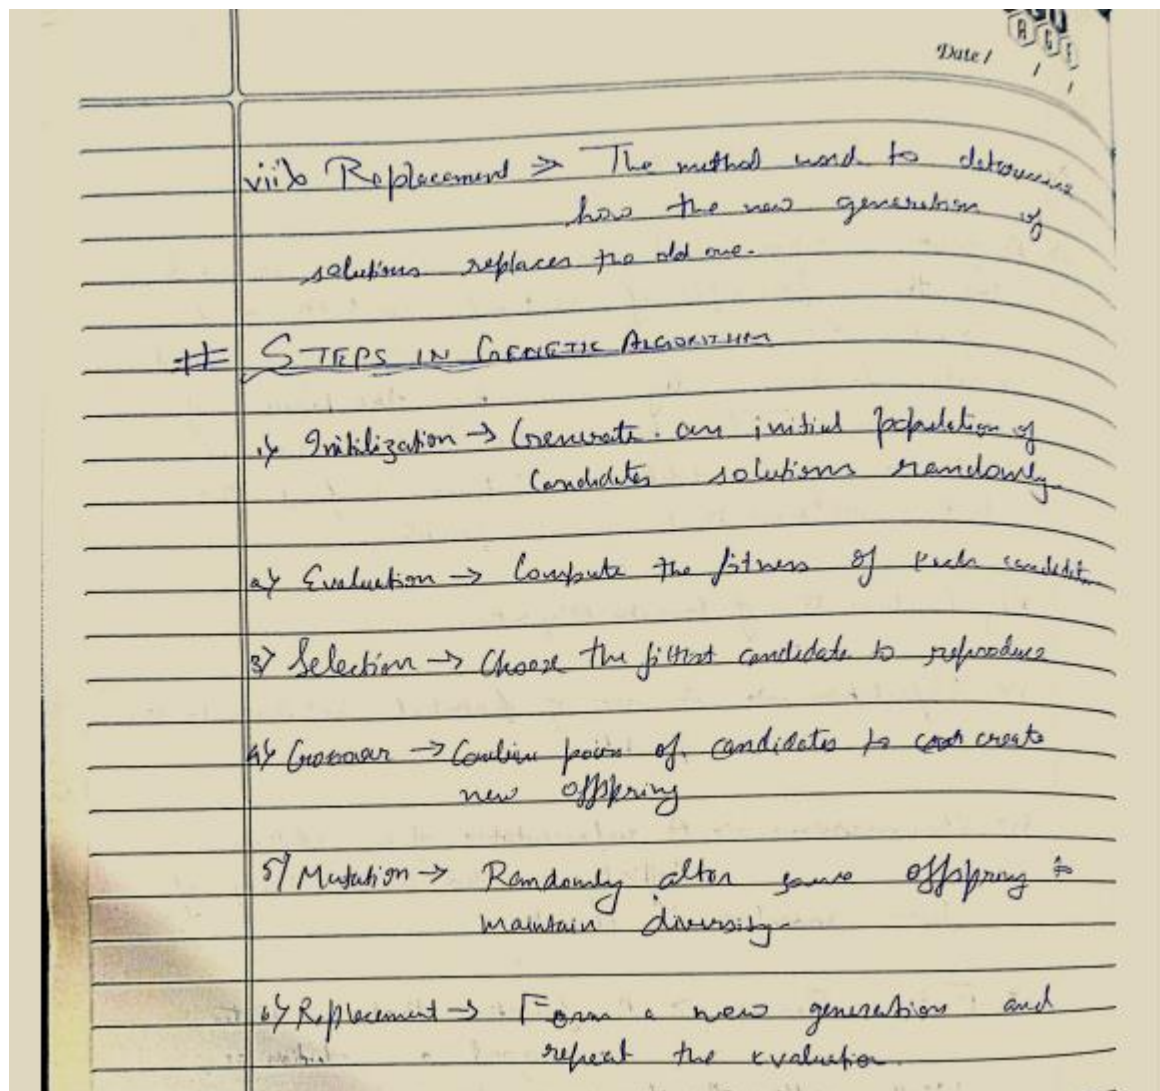 Date / / /
viii) Replacement ⇒ The method used to determine
how the new generation of
solutions replaces the old one.
# STEPS IN GENETIC ALGORITHM
1) Initilization → Generate an initial population of
Candidates solutions randomly.
2) Evaluation → Compute the fitness of each candidate
3) Selection → Choose the fittest candidate to reproduce
4) Crossover → Combine pairs of candidates to create
new offspring
5) Mutation → Randomly alter some offspring to
maintain diversity
6) Replacement → Form a new generation and
repeat the evaluation.